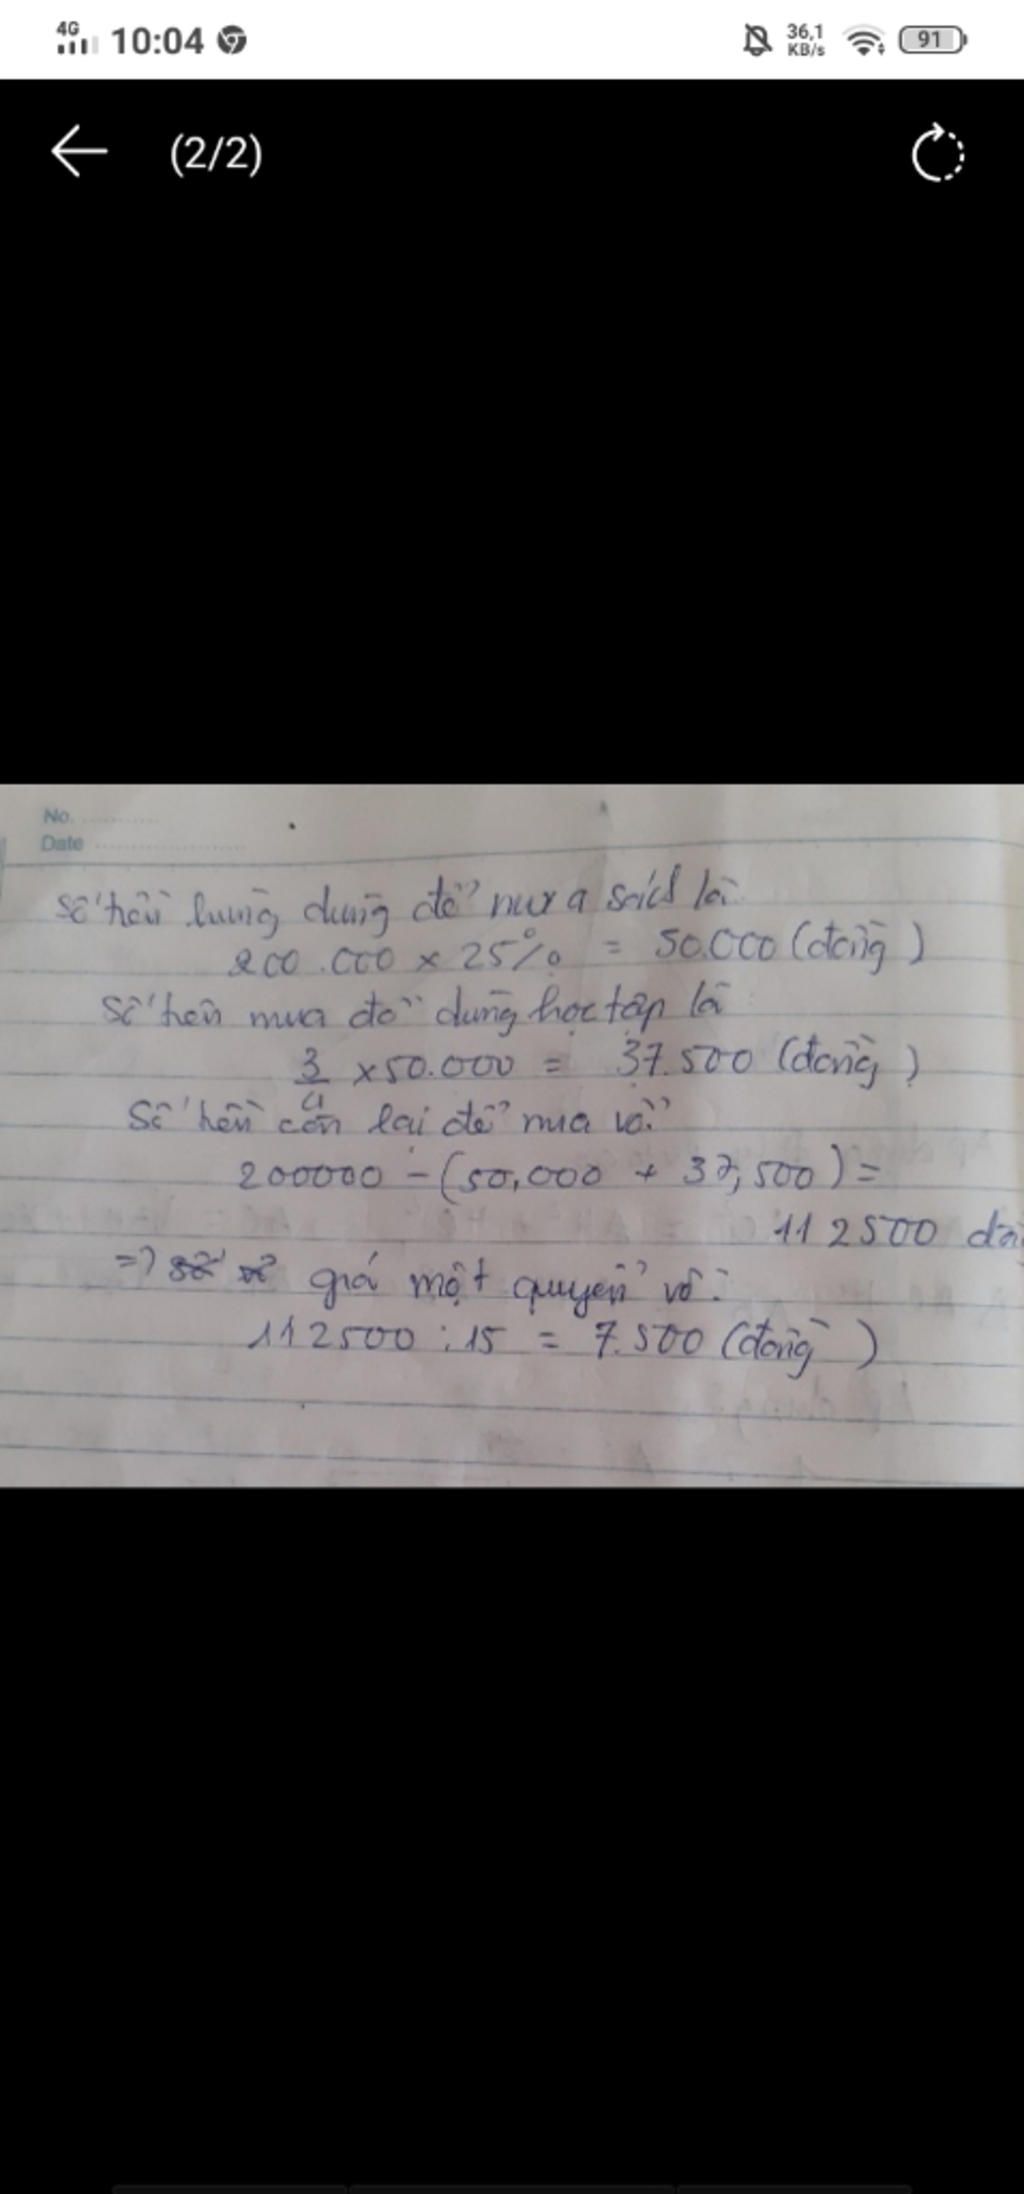 4G 10:04 36,1 KB/s 91
(2/2)
No.
Date
Số tiền Hùng dùng để mua sách là
200.000 x 25% = 50.000 (đồng)
Số tiền mua đồ dùng học tập là
3/4 x 50.000 = 37.500 (đồng)
Số tiền còn lại để mua vở:
200000 - (50,000 + 37,500) =
112500 đồ
=> giá một quyển vở:
112500 : 15 = 7.500 (đồng)